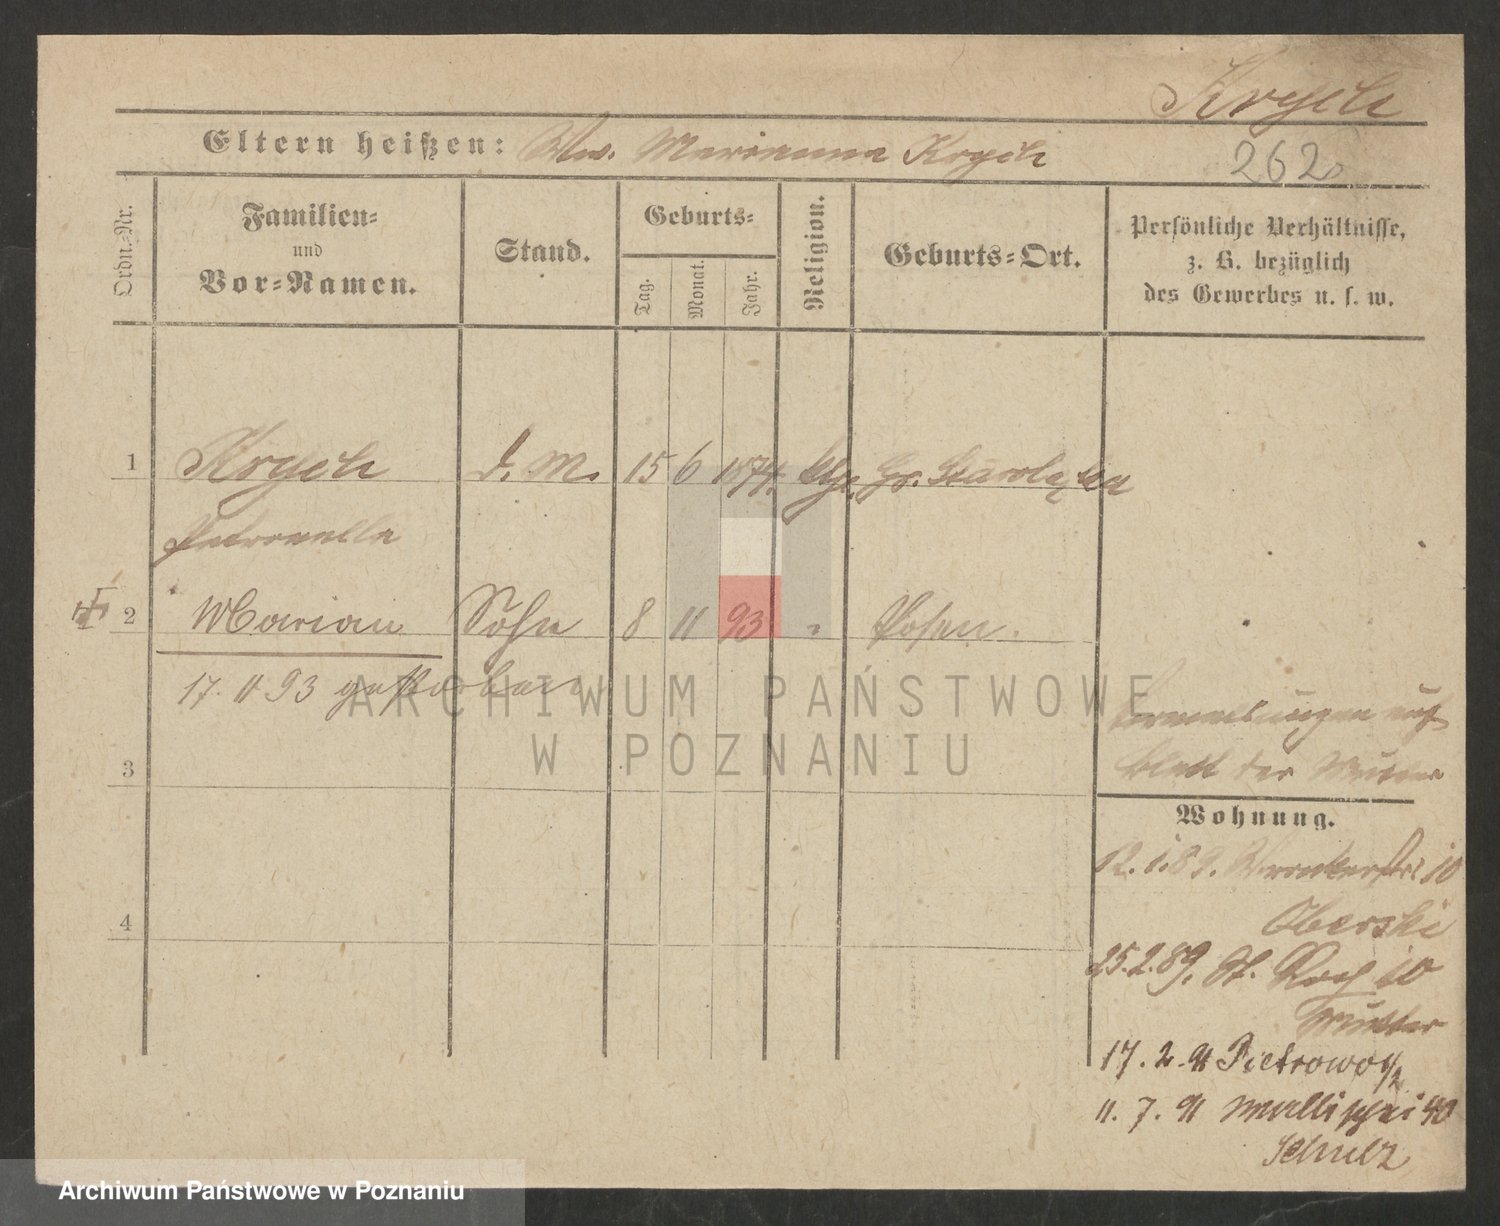 Krych
Eltern heißen: Ww. Marianna Krych
262
Ordn.-Nr.
Familien-
und
Vor-Namen.
Stand.
Geburts-
Tag.
Monat.
Jahr.
Religion.
Geburts-Ort.
Persönliche Verhältnisse,
z. B. bezüglich
des Gewerbes u. s. w.
1 Krych d. M. 15 6 1874. kth. Gr. Starolęka
Petronella
2 Marian Sohn 8 11 93 " Posen.
17. 11 93 gestorben
ARCHIWUM PAŃSTWOWE
W POZNANIU
auf
Blatt der Mutter
3
Wohnung.
12.1.89. Wronkerstr. 10
Oberski
4
25.2.89. St. Roch 10
Mutter
17. 2. 91 Pietrowo 1/2
11. 7. 91 Wallischei 40
Schulz
Archiwum Państwowe w Poznaniu